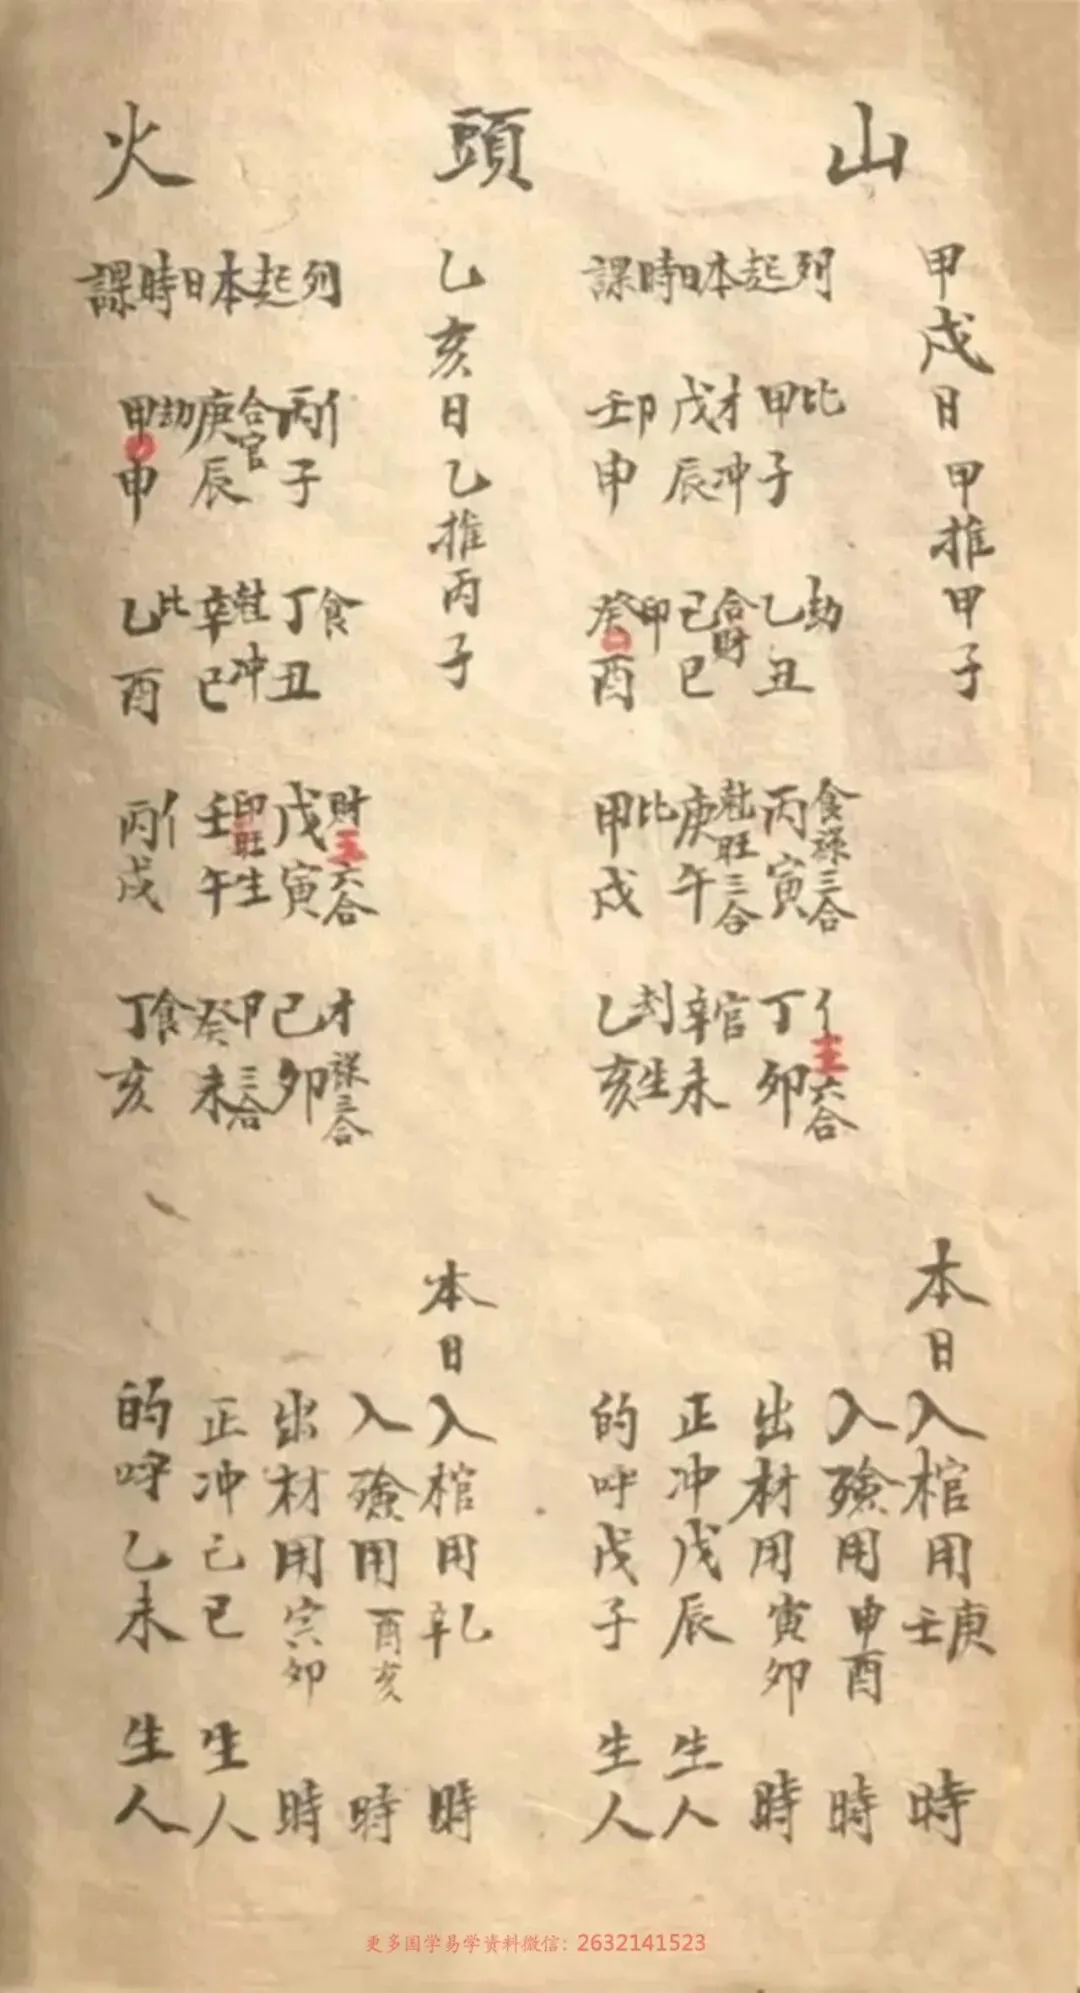 山頭火
甲戌日甲推甲子
列起本日時課
甲子 比
戊辰 才冲
壬申 卩
乙丑 劫
己巳 合財
癸酉 印
丙寅 食禄三合
庚午 旺三合
甲戌 比
丁卯 六合
辛未 官
乙亥 生
本日入棺用庚壬時
入殮用申酉時
出材用寅卯時
正冲戊辰生人
的呼戊子生人
乙亥日乙推丙子
列起本日時課
丙子
庚辰 合官
甲申 劫
丁丑 食
辛巳 冲
乙酉 比
戊寅 財六合
壬午 印旺生
丙戌
己卯 才禄三合
癸未 卩三合
丁亥 食
本日入棺用乙辛時
入殮用酉亥時
出材用寅卯時
正冲己巳生人
的呼乙未生人
更多国学易学资料微信：2632141523